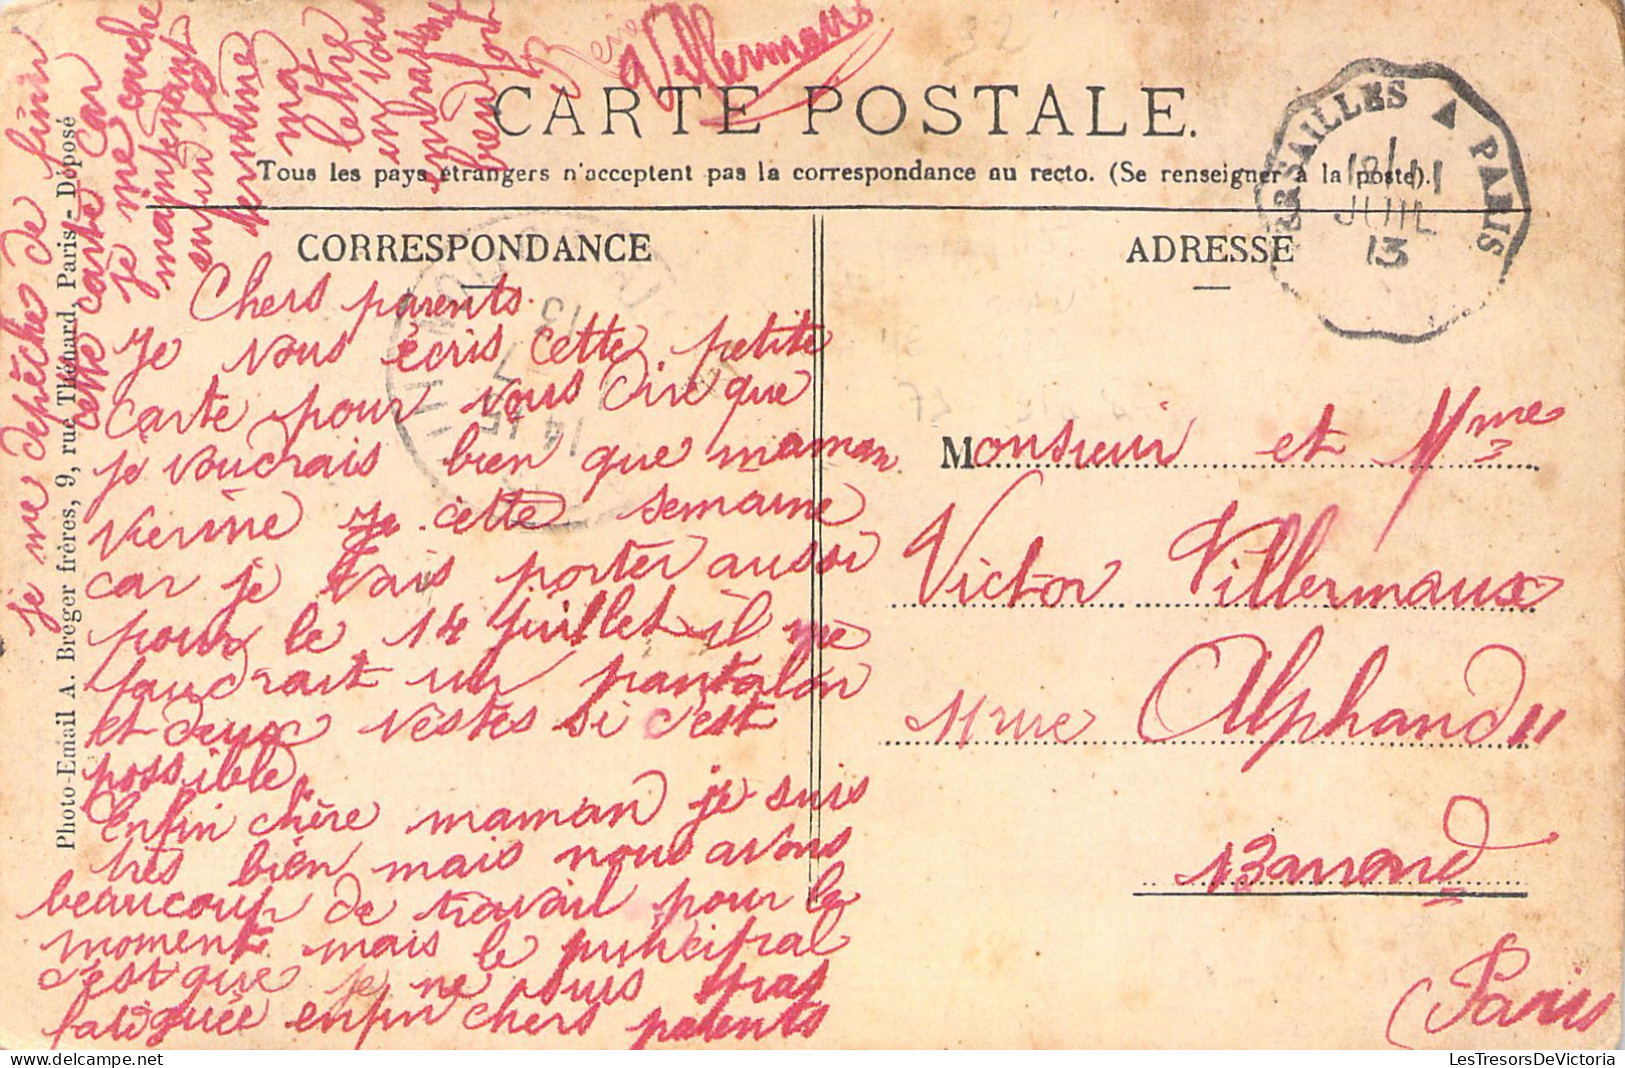 CARTE POSTALE.
Tous les pays étrangers n'acceptent pas la correspondance au recto. (Se renseigner à la poste).
CORRESPONDANCE
Chers parents
Je vous écris cette petite
carte pour vous dire que
je voudrais bien que maman
vienne cette semaine
car je vais porter aussi
pour le 14 juillet il me
faudrait un pantalon
et deux vestes si c'est
possible
Enfin chère maman je suis
très bien mais nous avons
beaucoup de travail pour le
moment mais le principal
c'est que je ne suis pas
fatiguée enfin chers parents
je me dépêche de finir
cette carte car
je me couche
maintenant
enfin je
termine
ma
lettre
en vous
embrassant
bien fort
Villermaux
ADRESSE
Monsieur et Mme
Victor Villermaux
11 rue Alphand 11
13 arrond
Paris
VERSAILLES A PARIS
JUIL
13
Photo-Email A. Breger frères, 9, rue Thénard, Paris - Déposé
LesTresorsDeVictoria